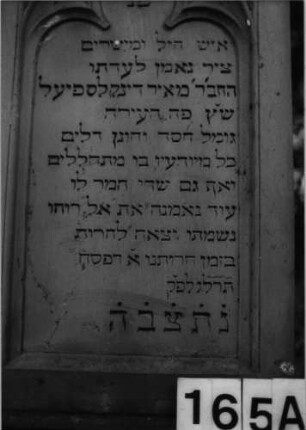 איש חיל ומישרים
ציר נאמן לעדתו
החבר מאיר דינקלספיעל
ש״ץ פה העירה
גומל חסד וחונן דלים
כל מיודעיו בו מתהללים
ואף גם שדי המר לו
עוד נאמנה את אל רוחו
נשמתו יצאה לחרות
בזמן חרותנו א׳ דפסח
תרל״ג לפ״ק
נ׳ת׳צ׳ב׳ה׳
165A